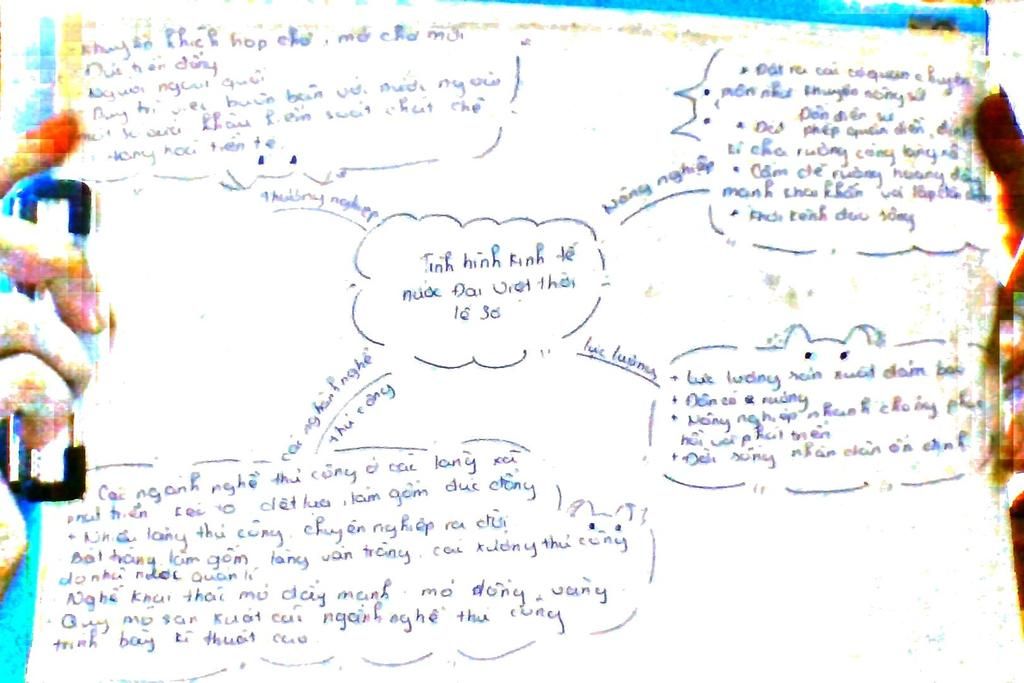 khuyến khích họp chợ, mở chợ mới
Đúc tiền đồng
Người người quốc
Duy trì việc buôn bán với nước ngoài
khẩu kiểm soát chặt chẽ
hoá tiền tệ
thương nghiệp
Nông nghiệp
+ Đặt ra các cơ quan chuyên
môn như khuyến nông sứ
Đồn điền sứ
+ Đặt phép quân điền, định
kì chia ruộng công làng xã
+ Cấm để ruộng hoang đẩy
mạnh khai khẩn và lập đồn điền
+ khơi kênh đào sông
Tình hình kinh tế
nước Đại Việt thời
lê sơ
lực lượng
+ Lực lượng sản xuất đảm bảo
+ Dân có ruộng
+ Nông nghiệp nhanh chóng phục
hồi và phát triển
+ Đời sống nhân dân ổn định
các nghành nghề
thủ công
Các ngành nghề thủ công ở các làng xã
phát triển kéo tơ dệt lụa, làm gốm đúc đồng
+ Nhiều làng thủ công, chuyên nghiệp ra đời
Bát tràng làm gốm làng vân tràng, các xưởng thủ công
do nhà nước quản lí
Nghề khai thác mỏ đẩy mạnh mỏ đồng, vàng
Quy mô sản xuất các ngành nghề thủ công
trình bày kĩ thuật cao